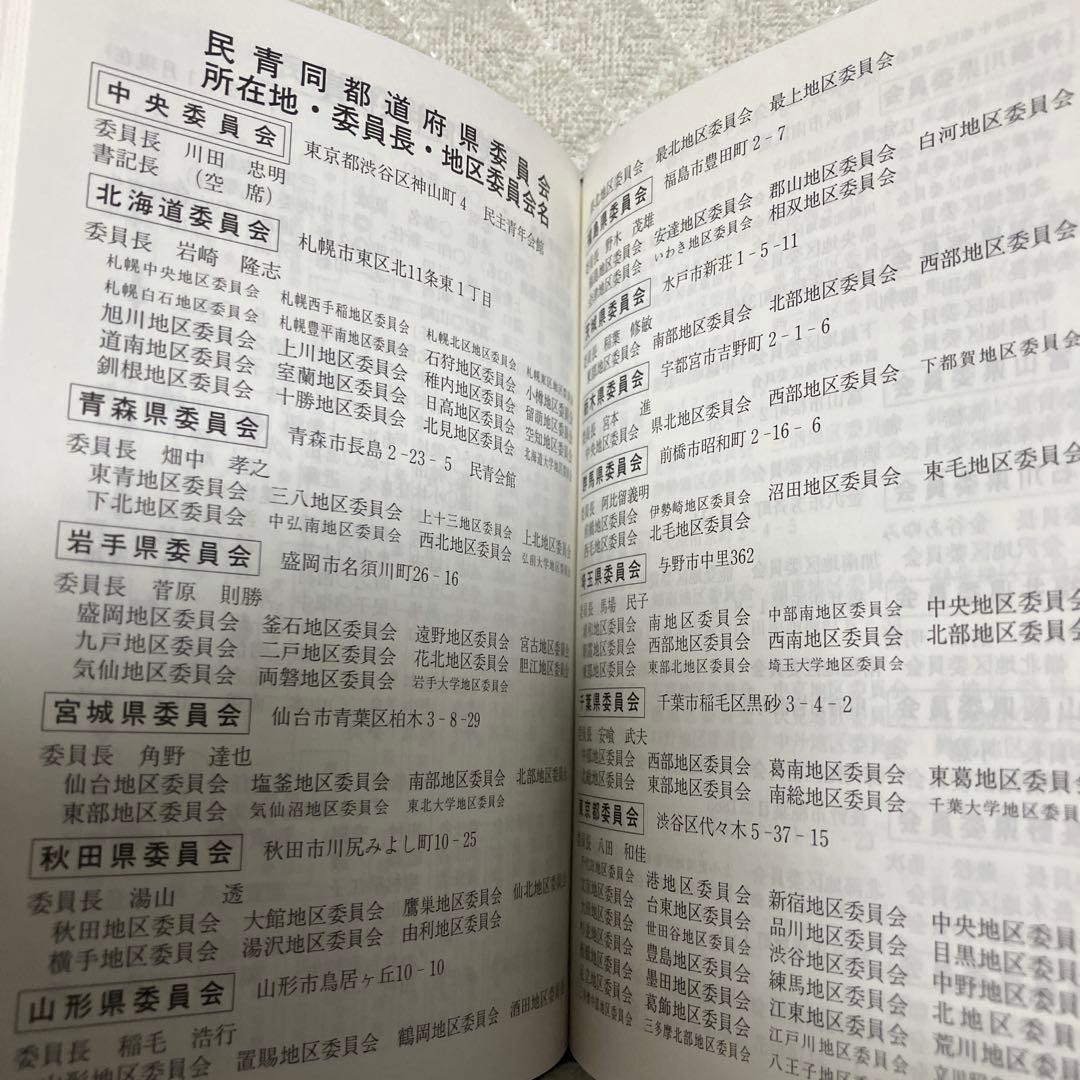 民青同都道府県委員会
所在地・委員長・地区委員会名
中央委員会 東京都渋谷区神山町4 民主青年会館
委員長 川田 忠明
書記長 (空席)
北海道委員会 札幌市東区北11条東1丁目
委員長 岩崎 隆志
札幌中央地区委員会 札幌西手稲地区委員会 札幌北区地区委員会 札幌東区地区委員会
札幌白石地区委員会 札幌豊平南地区委員会 石狩地区委員会 小樽地区委員会
旭川地区委員会 上川地区委員会 稚内地区委員会 留萌地区委員会
道南地区委員会 室蘭地区委員会 日高地区委員会 空知地区委員会
釧根地区委員会 十勝地区委員会 北見地区委員会 北海道大学地区委員会
青森県委員会 青森市長島2-23-5 民青会館
委員長 畑中 孝之
東青地区委員会 三八地区委員会 上十三地区委員会 上北地区委員会
下北地区委員会 中弘南地区委員会 西北地区委員会 弘前大学地区委員会
岩手県委員会 盛岡市名須川町26-16
委員長 菅原 則勝
盛岡地区委員会 釜石地区委員会 遠野地区委員会 宮古地区委員会
九戸地区委員会 二戸地区委員会 花北地区委員会 胆江地区委員会
気仙地区委員会 両磐地区委員会 岩手大学地区委員会
宮城県委員会 仙台市青葉区柏木3-8-29
委員長 角野 達也
仙台地区委員会 塩釜地区委員会 南部地区委員会 北部地区委員会
東部地区委員会 気仙沼地区委員会 東北大学地区委員会
秋田県委員会 秋田市川尻みよし町10-25
委員長 湯山 透
秋田地区委員会 大館地区委員会 鷹巣地区委員会 仙北地区委員会
横手地区委員会 湯沢地区委員会 由利地区委員会
山形県委員会 山形市鳥居ヶ丘10-10
委員長 稲毛 浩行
山形地区委員会 置賜地区委員会 鶴岡地区委員会 酒田地区委員会
地区委員会 最北地区委員会 最上地区委員会
福島県委員会 福島市豊田町2-7
委員長 野木 茂雄
地区委員会 安達地区委員会 郡山地区委員会 白河地区委員会
地区委員会 いわき地区委員会 相双地区委員会
茨城県委員会 水戸市新荘1-5-11
委員長 稲葉 修敏
地区委員会 南部地区委員会 北部地区委員会 西部地区委員会
栃木県委員会 宇都宮市吉野町2-1-6
委員長 宮本 進
中央地区委員会 県北地区委員会 西部地区委員会 下都賀地区委員会
群馬県委員会 前橋市昭和町2-16-6
委員長 阿比留義明
前橋地区委員会 伊勢崎地区委員会 沼田地区委員会 東毛地区委員会
西毛地区委員会 北毛地区委員会
埼玉県委員会 与野市中里362
委員長 馬場 民子
浦和地区委員会 南地区委員会 中部南地区委員会 中央地区委員会
地区委員会 西部地区委員会 西南地区委員会 北部地区委員会
東部地区委員会 東部北地区委員会 埼玉大学地区委員会
千葉県委員会 千葉市稲毛区黒砂3-4-2
委員長 安喰 武夫
中部地区委員会 西部地区委員会 葛南地区委員会 東葛地区委員会
北総地区委員会 東部地区委員会 南総地区委員会 千葉大学地区委員会
東京都委員会 渋谷区代々木5-37-15
委員長 八田 和佳
千代田地区委員会 港地区委員会 新宿地区委員会 中央地区委員会
文京地区委員会 台東地区委員会 品川地区委員会 目黒地区委員会
大田地区委員会 世田谷地区委員会 渋谷地区委員会 中野地区委員会
杉並地区委員会 豊島地区委員会 練馬地区委員会 北地区委員会
板橋地区委員会 墨田地区委員会 江東地区委員会 荒川地区委員会
足立地区委員会 葛飾地区委員会 江戸川地区委員会 立川
地区委員会 三多摩北部地区委員会 八王子地区委員会